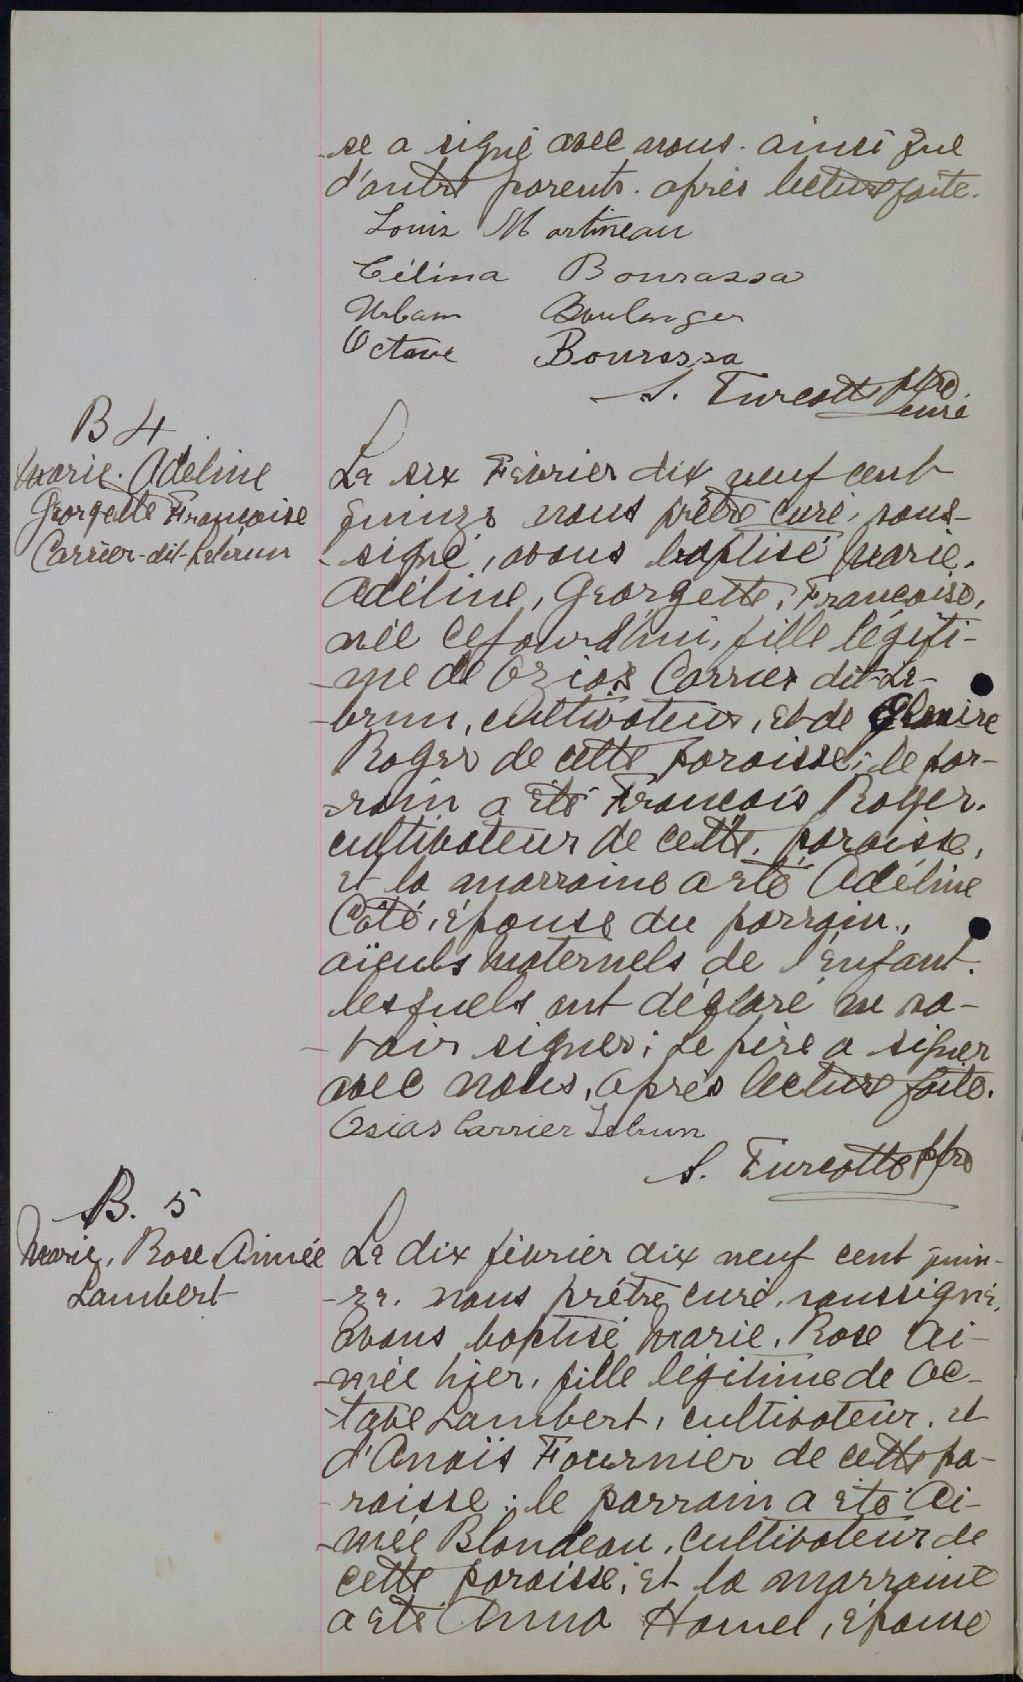 se a signé avec nous. ainsi que
d'autre parents. après lecture faite.
Louis Martineau
Célina Bourassa
Urbain Boulanger
Octave Bourassa
S. Turcotte ptre
curé
B 4
Marie. Adéline
Georgette Françoise
Carrier-dit-Lebrun
Le six Février dix neuf cent
quinze nous prêtre curé, sous-
-signé, avons baptisé Marie.
Adéline, Georgette, Françoise,
née cejourd'hui, fille légiti-
-me de Ozias Carrier dit-Le-
-brun, cultivateur, et de
Roger de cette paroisse; le par-
-rain a été François Roger.
cultivateur de cette. paroisse,
et la marraine a été Adéline
Côté, épouse du parrain.,
aïeuls maternels de l'enfant.
lesquels ont déclaré ne sa-
-voir signer; le père a signer
avec nous, après lecture faite.
Osias Carrier Lebrun
S. Turcotte ptre
B. 5
Marie, Rose Aimée
Lambert
Le dix février dix neuf cent quin-
-ze. nous prêtre curé, soussigné,
avons baptisé Marie, Rose Ai-
-mée hier, fille légitime de Oc-
-tave Lambert, cultivateur, et
d'Anaïs Fournier de cette pa-
-roisse; le parrain a été Ai-
-mée Blondeau, cultivateur de
cette paroisse; et la marraine
a été Anna Hamel, épouse